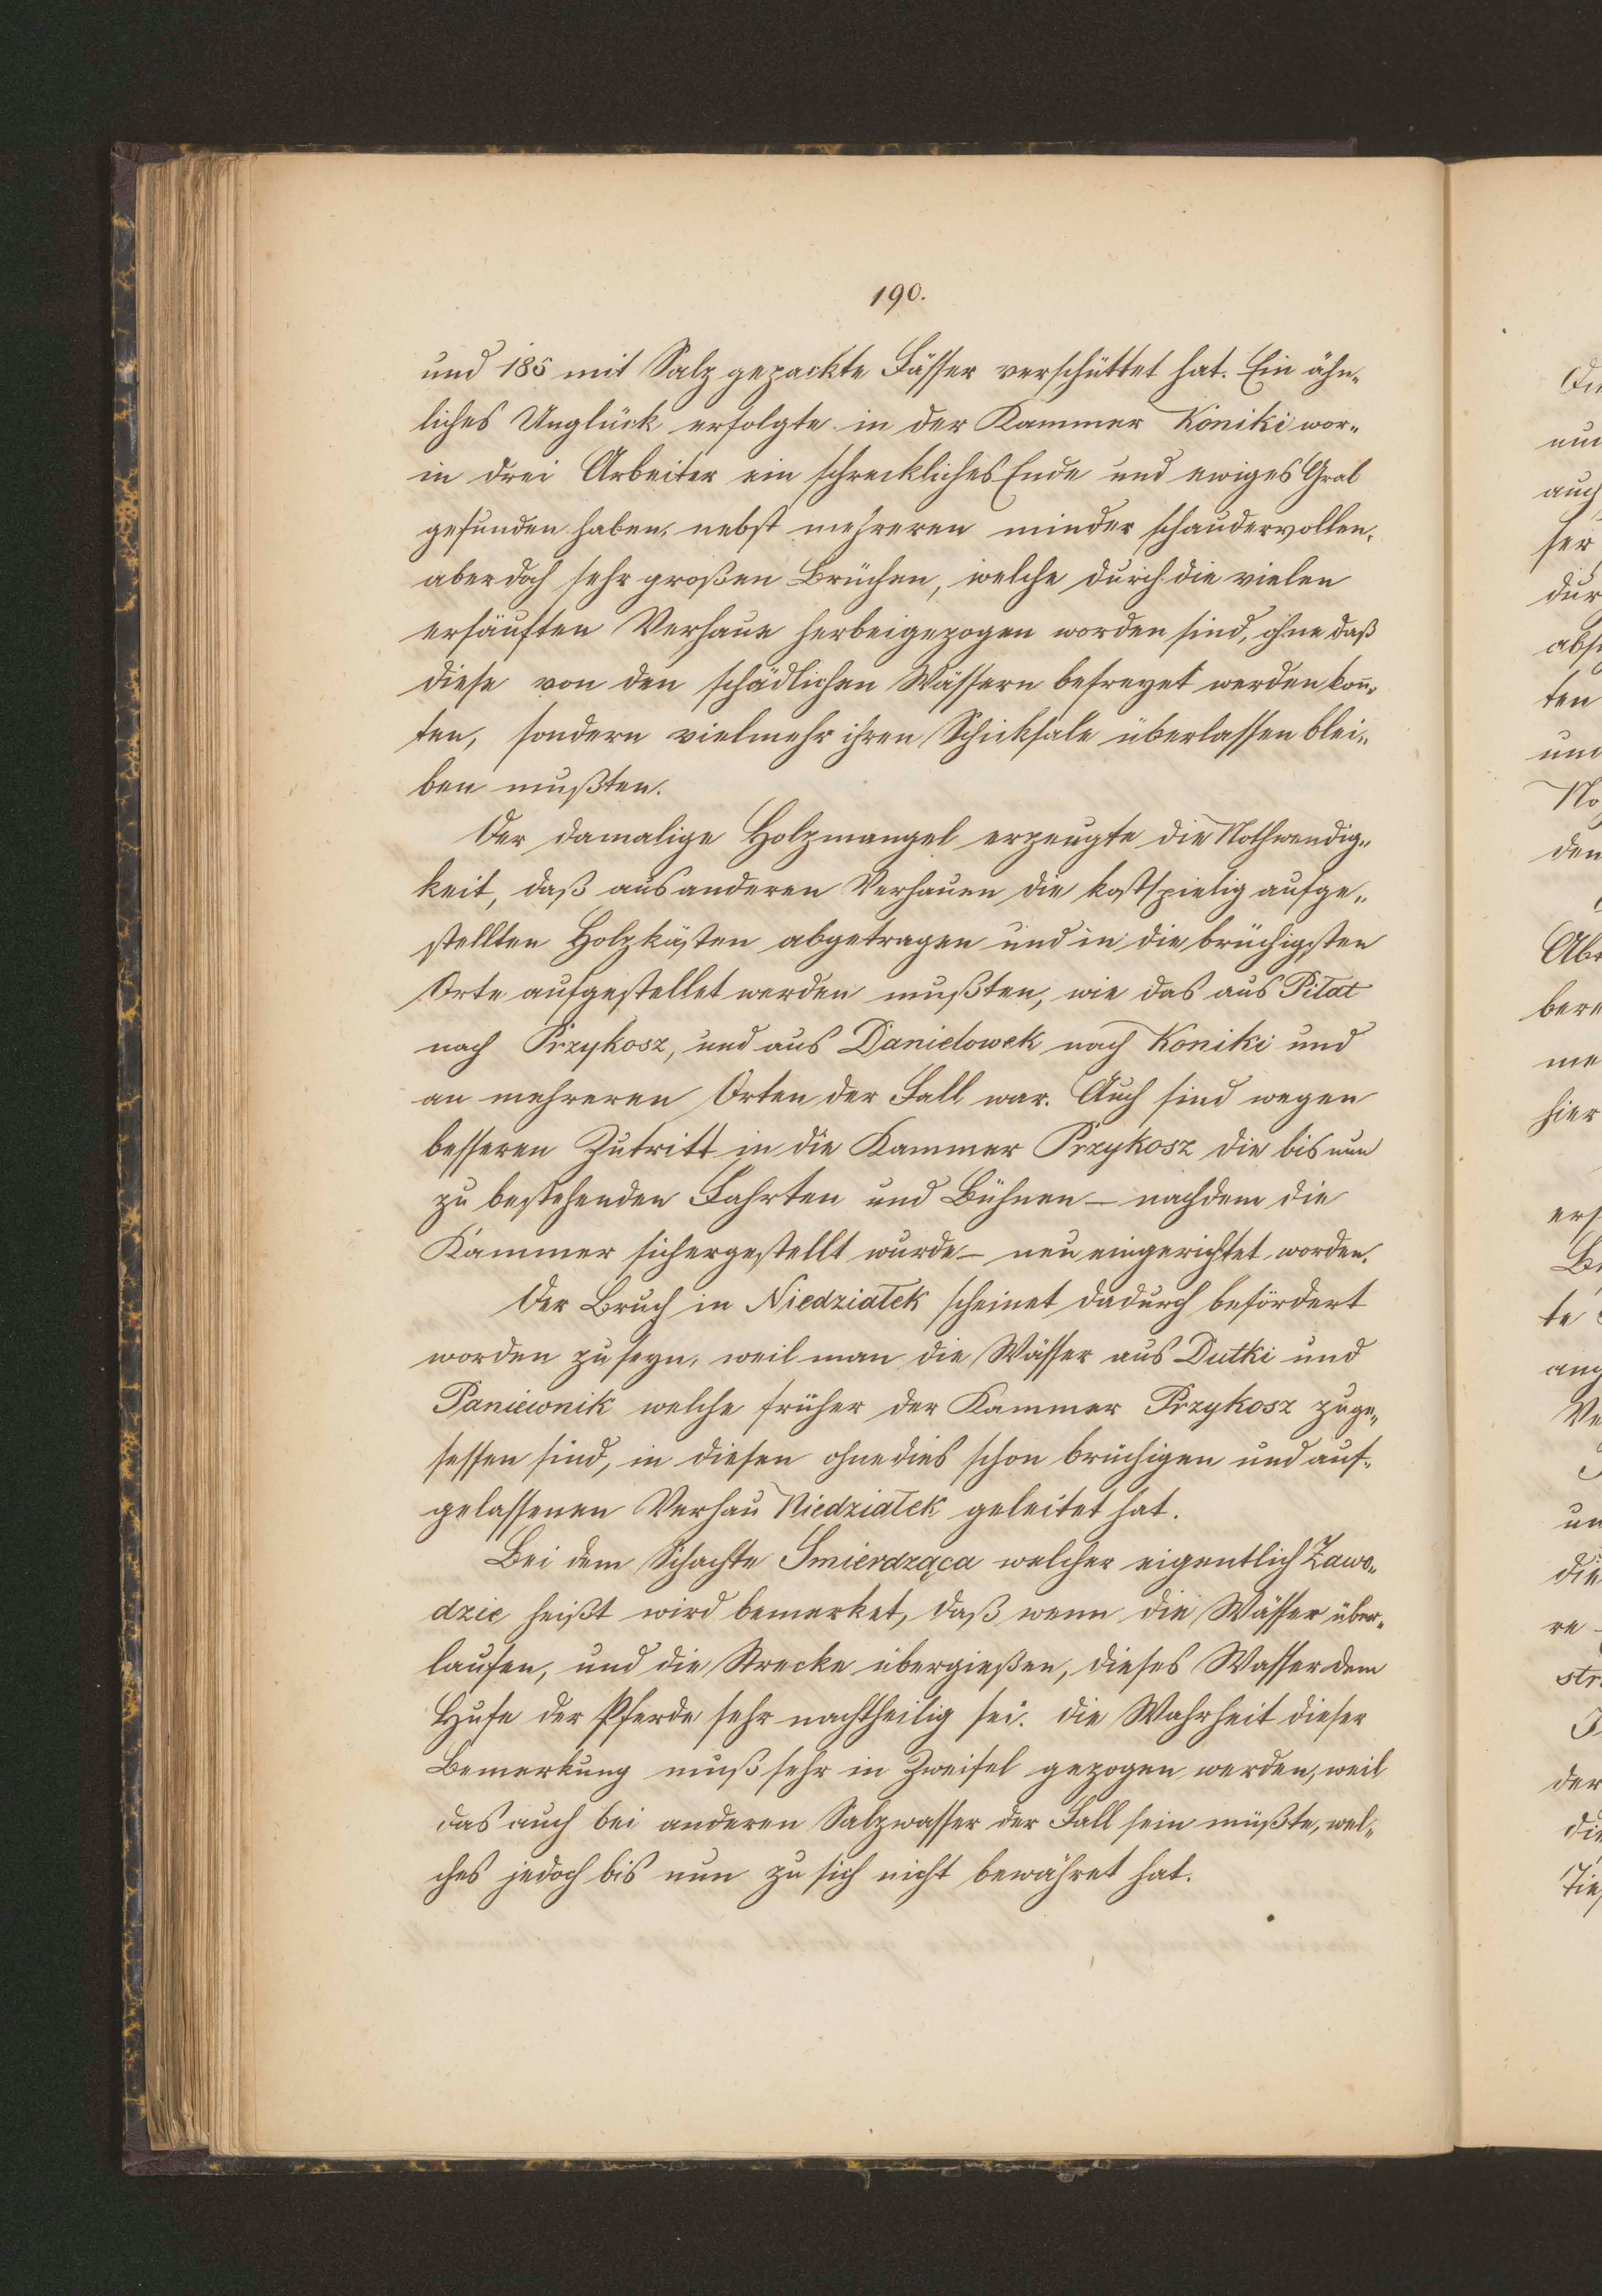 190.
und 185 mit Salz gepackte Fässer verschüttet hat. Ein ähn„
liches Unglück erfolgte in der Kammer Koniki wor„
in drei Arbeiter ein schreckliches Ende und ewiges Grab
gefunden haben, nebst mehreren minder schaudervollen,
aber doch sehr großen Brüchen, welche durch die vielen
ersäuften Verhaue herbeigezogen worden sind, ohne daß
diese von den schädlichen Wässern befreyet werden koñ„
ten, sondern vielmehr ihren Schicksale überlassen blei„
ben mußten.
Der damalige Holzmangel erzeugte die Nothwendig„
keit, daß aus anderen Verhauen die kostspielig aufge„
stellten Holzkästen abgetragen und in die brüchigsten
Orte aufgestellet werden mußten, wie das aus Piłat
nach Przykosz, und aus Danielowek nach Koniki und
an mehreren Orten der Fall war. Auch sind wegen
besseren Zutritt in die Kammer Przykosz die bis nun
zu bestehenden Fahrten und Bühnen – nachdem die
Kammer sichergestellt wurde – neu eingerichtet worden.
Der Bruch in Niedziałek scheinet dadurch befördert
worden zu seyn, weil man die Wässer aus Dutki und
Paniewnik welche früher der Kammer Przykosz zuge„
sessen sind, in diesen ohnedies schon brüchigen und auf„
gelassenen Verhau Niedziałek geleitet hat.
Bei dem Schachte Smierdząca welcher eigentlich Zawo„
dzie heißt wird bemerket, daß wenn die Wässer über„
laufen, und die Strecke übergießen, dieses Wasser dem
Hufe der Pferde sehr nachtheilig sei. die Wahrheit dieser
Bemerkung muß sehr in Zweifel gezogen werden, weil
das auch bei anderen Salzwasser der Fall sein müßte, wel„
ches jedoch bis nun zu sich nicht bewähret hat.